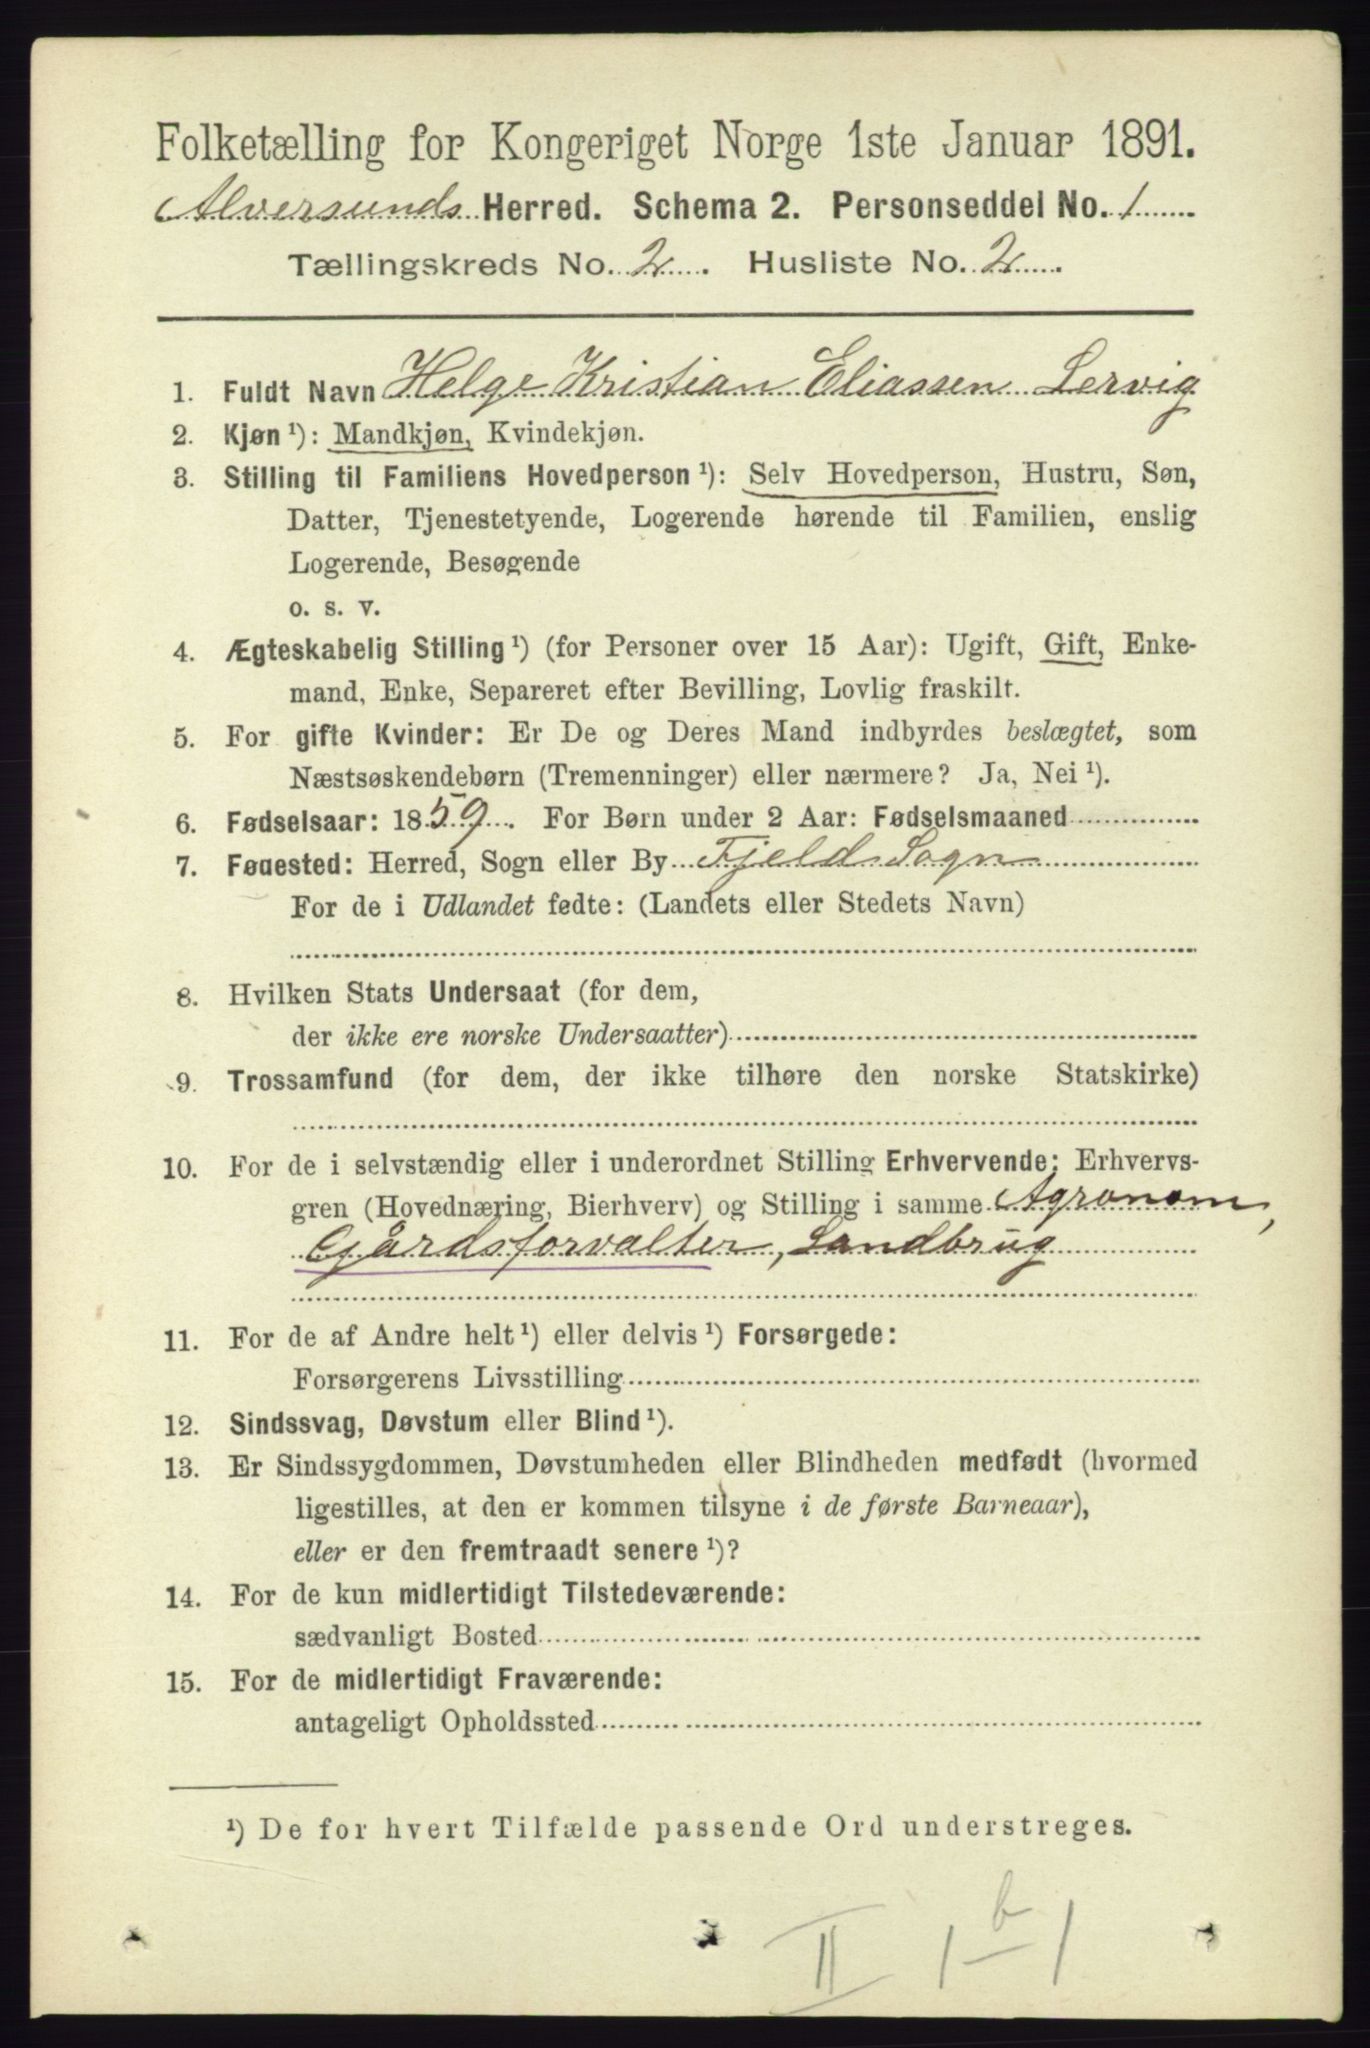 Folketælling for Kongeriget Norge 1ste Januar 1891.
Alversunds Herred. Schema 2. Personseddel No. 1
Tællingskreds No. 2. Husliste No. 2.
1. Fuldt Navn Helge Kristian Eliassen Lervig
2. Kjøn ¹): Mandkjøn, Kvindekjøn.
3. Stilling til Familiens Hovedperson ¹): Selv Hovedperson, Hustru, Søn,
Datter, Tjenestetyende, Logerende hørende til Familien, enslig
Logerende, Besøgende
o. s. v.
4. Ægteskabelig Stilling ¹) (for Personer over 15 Aar): Ugift, Gift, Enke-
mand, Enke, Separeret efter Bevilling, Lovlig fraskilt.
5. For gifte Kvinder: Er De og Deres Mand indbyrdes beslægtet, som
Næstsøskendebørn (Tremenninger) eller nærmere? Ja, Nei ¹).
6. Fødselsaar: 1859. For Børn under 2 Aar: Fødselsmaaned
7. Føuested: Herred, Sogn eller By Fjeld Sogn
For de i Udlandet fødte: (Landets eller Stedets Navn)
8. Hvilken Stats Undersaat (for dem,
der ikke ere norske Undersaatter)
9. Trossamfund (for dem, der ikke tilhøre den norske Statskirke)
10. For de i selvstændig eller i underordnet Stilling Erhvervende: Erhvervs-
gren (Hovednæring, Bierhverv) og Stilling i samme Agronom,
Gårdsforvalter, Landbrug
11. For de af Andre helt ¹) eller delvis ¹) Forsørgede:
Forsørgerens Livsstilling
12. Sindssvag, Døvstum eller Blind ¹).
13. Er Sindssygdommen, Døvstumheden eller Blindheden medfødt (hvormed
ligestilles, at den er kommen tilsyne i de første Barneaar),
eller er den fremtraadt senere ¹)?
14. For de kun midlertidigt Tilstedeværende:
sædvanligt Bosted
15. For de midlertidigt Fraværende:
antageligt Opholdssted
¹) De for hvert Tilfælde passende Ord understreges.
II 1 b 1